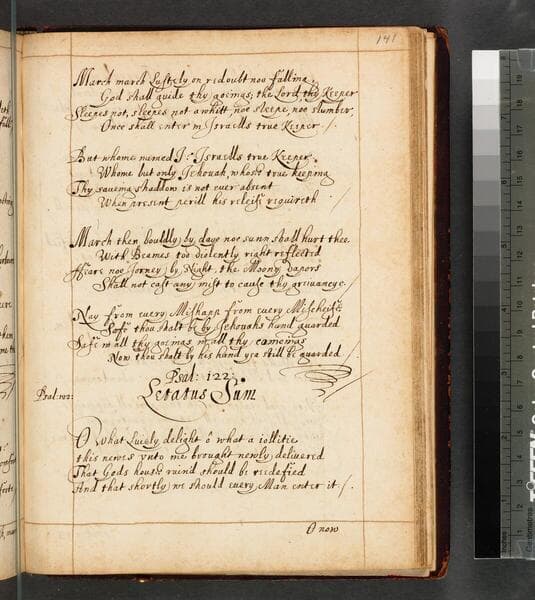 141
March march Lustely on redoubt noe falling,
God shall guide thy goeings, the Lord thy Keeper
Sleepes not, sleepes not a whitt, noe sleepe, noe slumber,
Once shall enter in Israells true Keeper /.
But whome named I: Israells true Keeper,
Whome but only Jehovah, whose true keeping
Thy saveing shaddow is not ever absent
When present perill his releife requireth /
March then bouldly by daye noe sunn shall hurt thee
With Beames too violently right reflected
Feare noe Jorney by Night, the Moony vapors
Shall not cast any mist to cause thy grievance /
Nay from every Mishapp from every Mischeife
Safe thou shalt be by Jehovahs hand guarded
Safe in all thy goeings in all thy comeings
Now thou shalt by his hand yea still be guarded
Psal: 122:
Psal: 122:
Letatus Sum
O what Lively delight ô what a iollitie
this newes unto me brought newly delivered
That Gods house ruin'd should be reedefied
And that shortly we should every Man enter it /.
O now